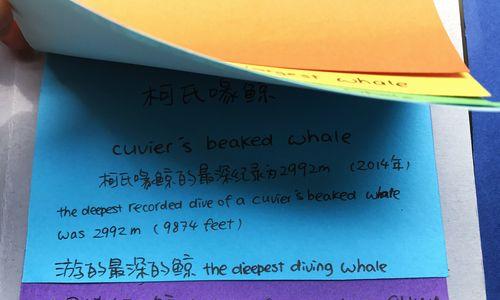 largest whale
柯氏喙鲸
cuvier's beaked whale
柯氏喙鲸的最深纪录为2992m (2014年)
the deepest recorded dive of a cuvier's beaked whale
was 2992m (9874 feet)
游的最深的鲸 the dieepest diving whale